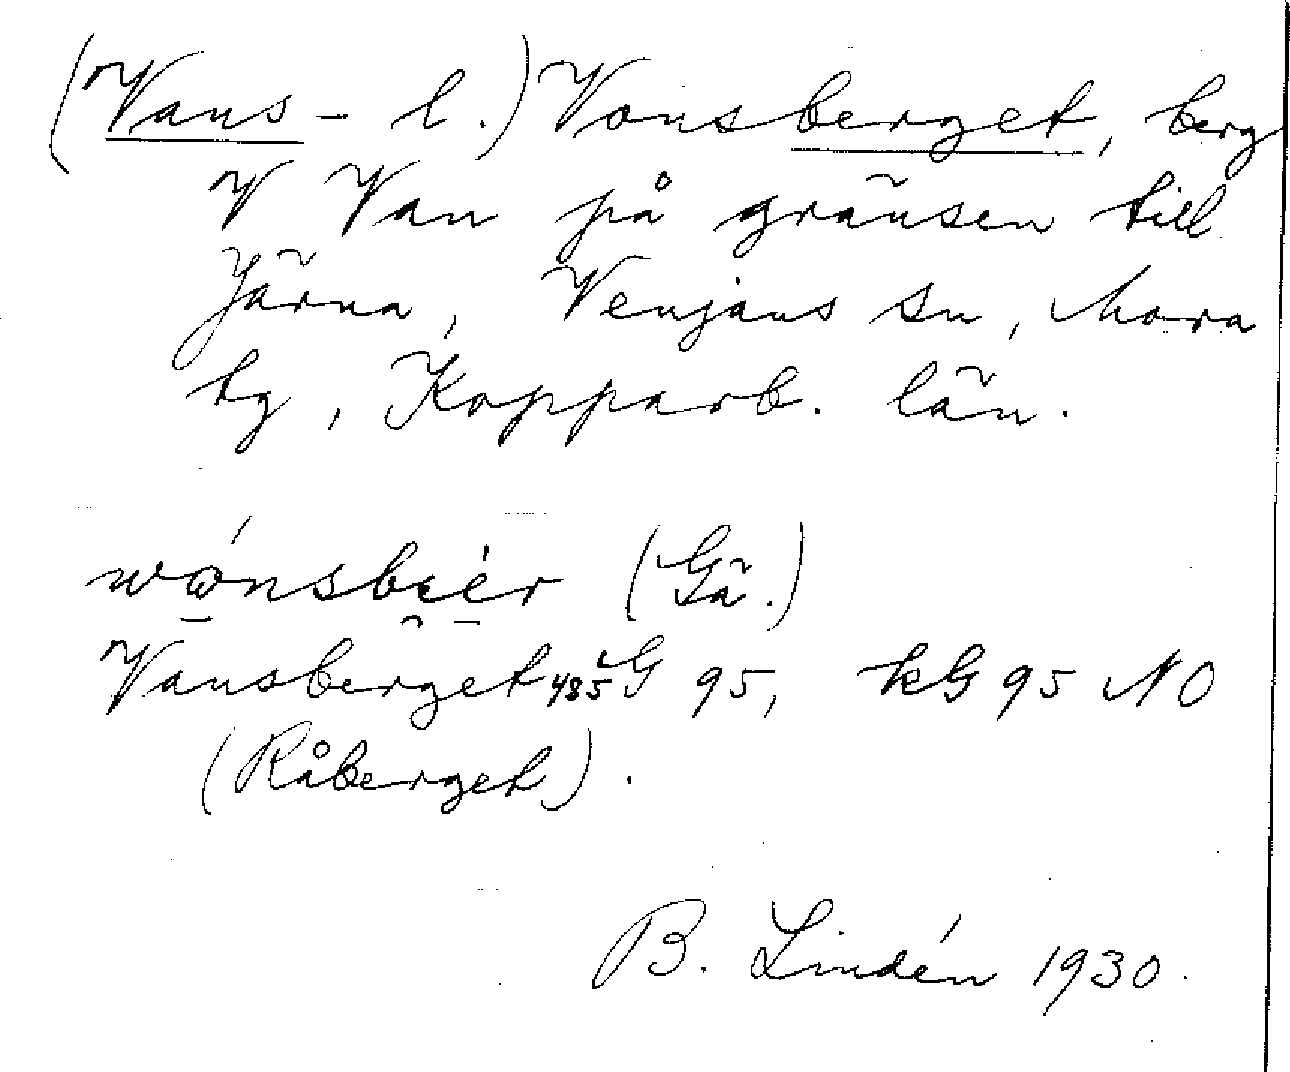 (Vans- l.) Vonsberget, berg
V Van på gränsen till
Järna, Venjans sn, Mora
tg, Kopparb. län.
wo̱nsbi̯e̱r (Gä.)
Vansberget 485 G 95, kG 95 NO
(Råberget).
B. Lindén 1930.